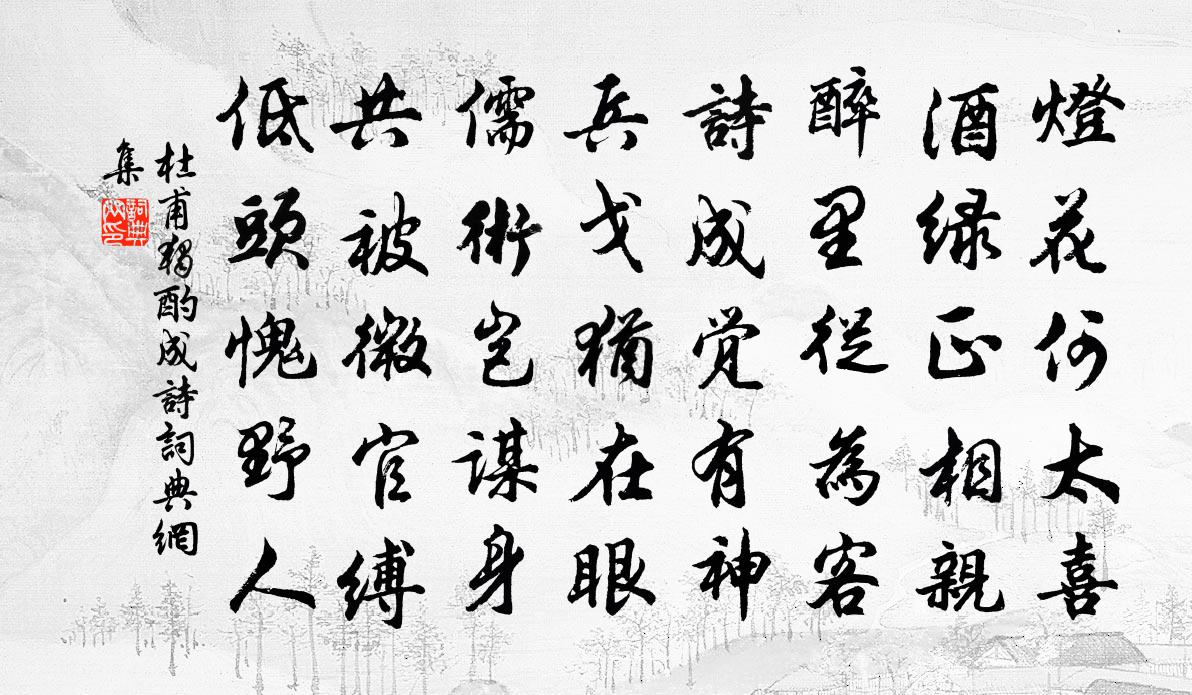 燈花何太喜
酒緑正相親
醉里從為客
詩成覚有神
兵戈猶在眼
儒術岂謀身
共被微官縛
低頭愧野人
杜甫獨酌成詩詞典網
集
詞典
网印